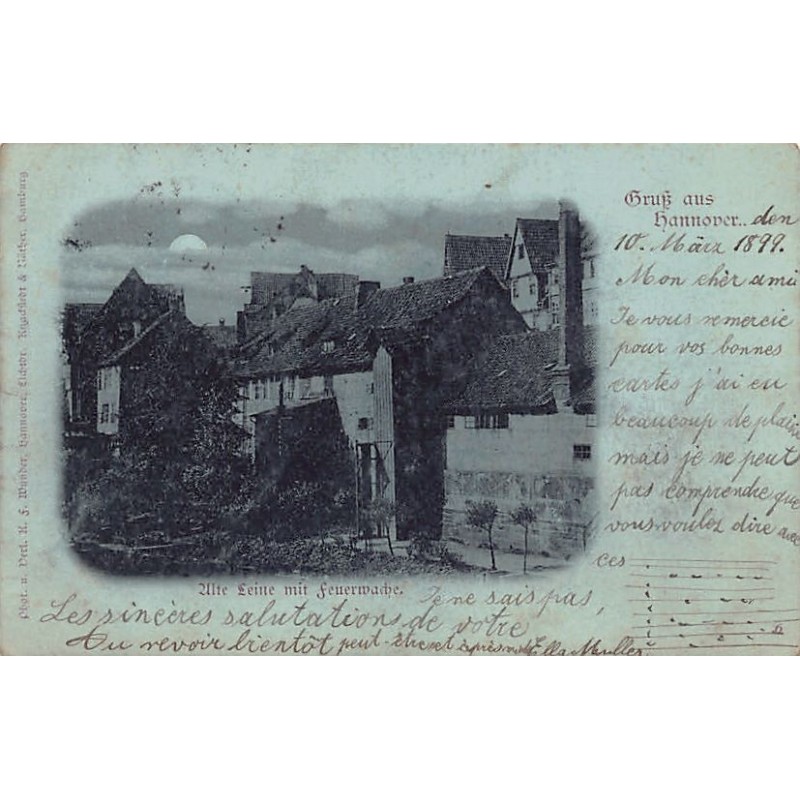 Gruß aus
Hannover.. den
10. März 1899.
Mon chèr ami
Je vous remercie
pour vos bonnes
cartes j'ai eu
beaucoup de plaisir
mais je ne peut
pas comprendre que
vous voulez dire avec
ces
Je ne sais pas,
Alte Leine mit Feuerwache.
Les sincères salutations de votre
Au revoir bientôt peut-être Ella Muller
Phot. u. Verl. K. F. Wunder, Hannover, Lichtdr. Knackstedt & Näther, Hamburg.